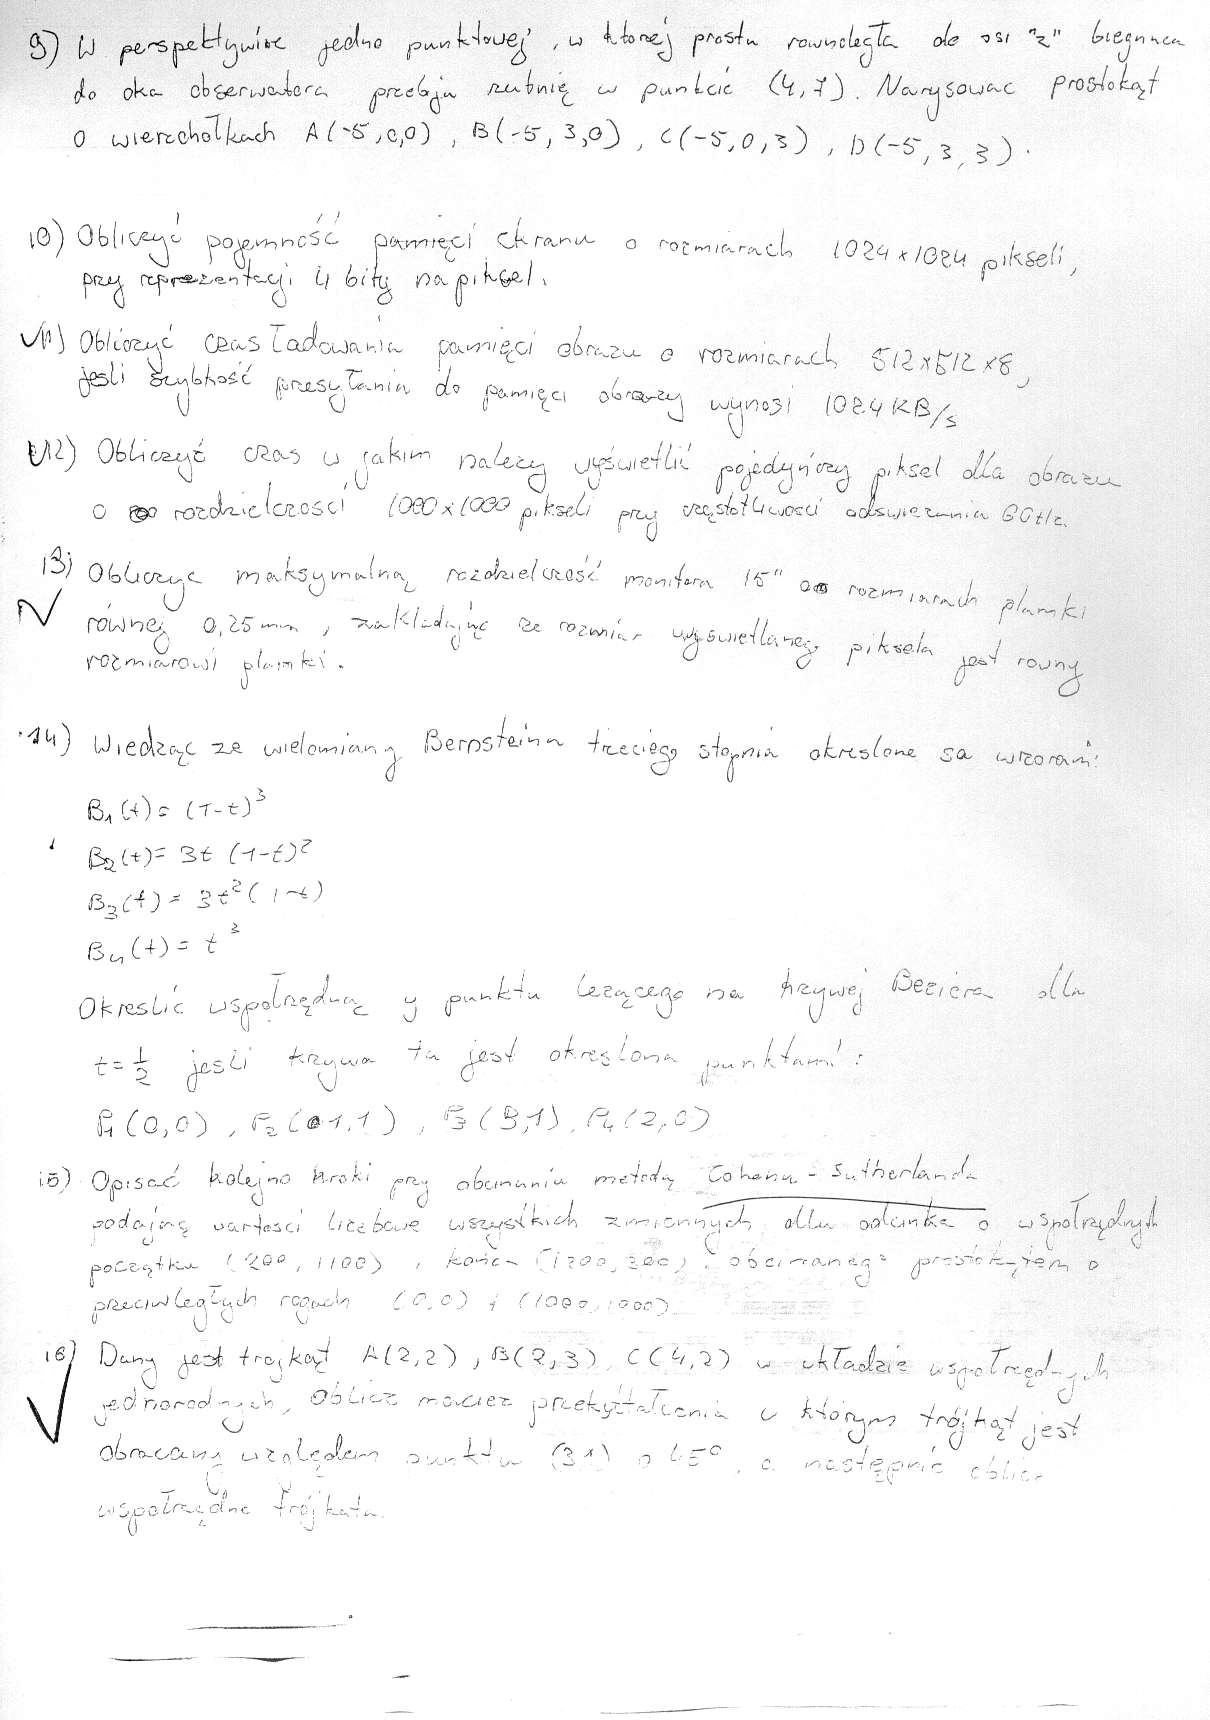 9) W perspektywie jedno punktowej, w ktorej prosta rownolegla do osi "z" biegnaca
do oka obserwatora przebija rzutnię w punkcie (4,7). Narysowac prostokąt
o wierzchołkach A(-5,0,0), B(-5,3,0), C(-5,0,3), D(-5,3,3).
10) Obliczyć pojemność pamięci ekranu o rozmiarach 1024x1024 pikseli,
przy reprezentacji 4 bity na piksel.
11) Obliczyć czas ładowania pamięci obrazu o rozmiarach 512x512x8,
jesli szybkość przesyłania do pamięci obrazu wynosi 1024KB/s
12) Obliczyć czas w jakim nalezy wyświetlić pojedyńczy piksel dla obrazu
o rozdzielczosci 1000x1000 pikseli przy częstotliwosci odswiezania 60Hz.
13) Obliczyc maksymalną rozdzielczość monitora 15" o rozmiarach plamki
równej 0,25mm, zakladając ze rozmiar wyswietlanego piksela jest rowny
rozmiarowi plamki.
14) Wiedząc ze wielomiany Bernsteina trzeciego stopnia okreslone sa wzorami:
B₁(t) = (1-t)³
B₂(t) = 3t (1-t)²
B₃(t) = 3t² (1-t)
B₄(t) = t³
Okreslić wspołrzędną y punktu lezącego na krzywej Beziera dla
t=½ jesli krzywa ta jest okreslona punktami:
P₁(0,0), P₂(1,1), P₃(3,1), P₄(2,0)
15) Opisać kolejno kroki przy obcinaniu metodą Cohena-Sutherlanda
podając wartosci liczbowe wszystkich zmiennych dla odcinka o wspołrzędnych
początku (200, 1100), końca (1200, 300), obcinanego prostokątem o
przeciwległych rogach (0,0) i (1000,1000)
16) Dany jest trojkąt A(2,2), B(2,3), C(4,2) w układzie wspołrzędnych
jednorodnych, Oblicz macierz przekształcenia w którym trójkąt jest
obracany względem punktu (3 1) o 45°, a następnie oblicz
wspołrzędne trójkata.